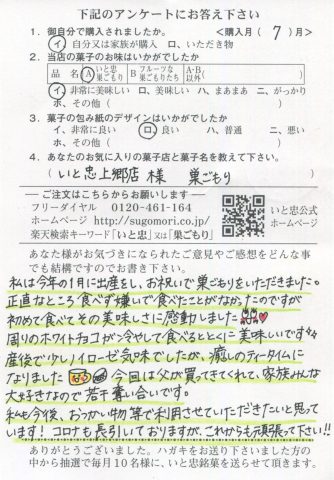 下記のアンケートにお答え下さい
1. 御自分で購入されましたか。 <購入月( 7 )月>
イ、自分又は家族が購入 ロ、いただき物
2. 当店の菓子のお味はいかがでしたか
品 名 A いと忠巣ごもり B フルーツな巣ごもりたち A・B以外( )
イ、非常に美味しい ロ、美味しい ハ、まあまあ ニ、がっかり
ホ、その他( )
3. 菓子の包み紙のデザインはいかがでしたか
イ、非常に良い ロ、良い ハ、普通 ニ、悪い
ホ、その他( )
4. あなたのお気に入りの菓子店と菓子名を教えて下さい。
(いと忠上郷店 様 巣ごもり )
ご注文はこちらからお願いします
フリーダイヤル 0120-461-164
ホームページ http://sugomori.co.jp/
楽天検索キーワード「いと忠」又は「巣ごもり」
いと忠公式
ホームページ
あなた様がお気づきになられたご意見やご感想をどんな事
でも結構ですのでお書き下さい。
私は今年の1月に出産をし、お祝いで巣ごもりをいただきました。
正直なところ食べず嫌いで食べたことがなかったのですが
初めて食べてその美味しさに感動しました
周りのホワイトチョコが冷やして食べるととくに美味しいです
産後で少しノイローゼ気味でしたが、癒しのティータイムに
なりました 今回は父が買ってきてくれて、家族みんな
大好きなので若干奪い合いです。
私も今後、おつかい物等で利用させていただきたいと思って
います!コロナも長引いておりますが、これからも頑張って下さい!!
ありがとうございました。ハガキをお送り下さいました方の
中から抽選で毎月10名様に、いと忠銘菓を送らせて頂きます。